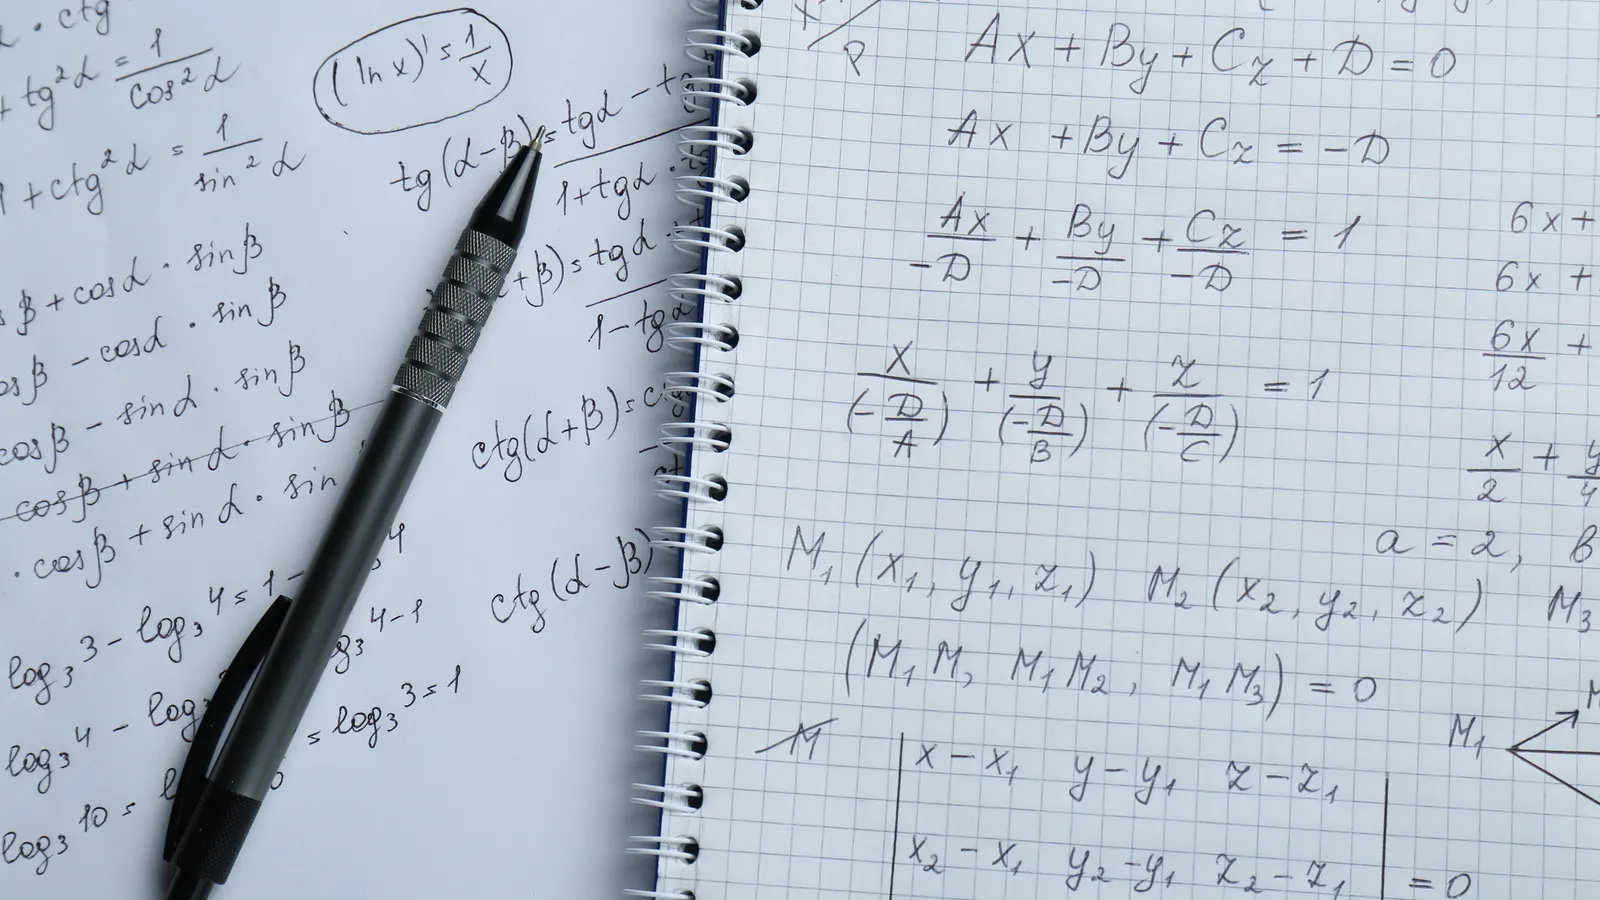 · ctg
+ tg²α = 1/cos²α
1 + ctg²α = 1/sin²α
(ln x)' = 1/x
tg(α-β) = tgα - t
1 + tgα ·
+β) = tgα
1 - tgα
β + cosα · sinβ
cosβ - cosα · sinβ
cosβ - sinα · sinβ
cosβ + sinα · sinβ
· cosβ + sinα · sin
ctg(α+β) = c
ctg(α-β)
log₃3 - log₃4 = 1 - 4
log₃4 - log₃ 4-1
log₃10 = = log₃3 = 1
Ax + By + Cz + D = 0
Ax + By + Cz = -D
Ax/-D + By/-D + Cz/-D = 1
x/(-D/A) + y/(-D/B) + z/(-D/C) = 1
6x +
6x +
6x/12 +
x/2 + y/4
a = 2, b
M₁(x₁, y₁, z₁) M₂(x₂, y₂, z₂) M₃
(M₁M, M₁M₂, M₁M₃) = 0
M
M₁
x - x₁ y - y₁ z - z₁
x₂ - x₁ y₂ - y₁ z₂ - z₁ = 0